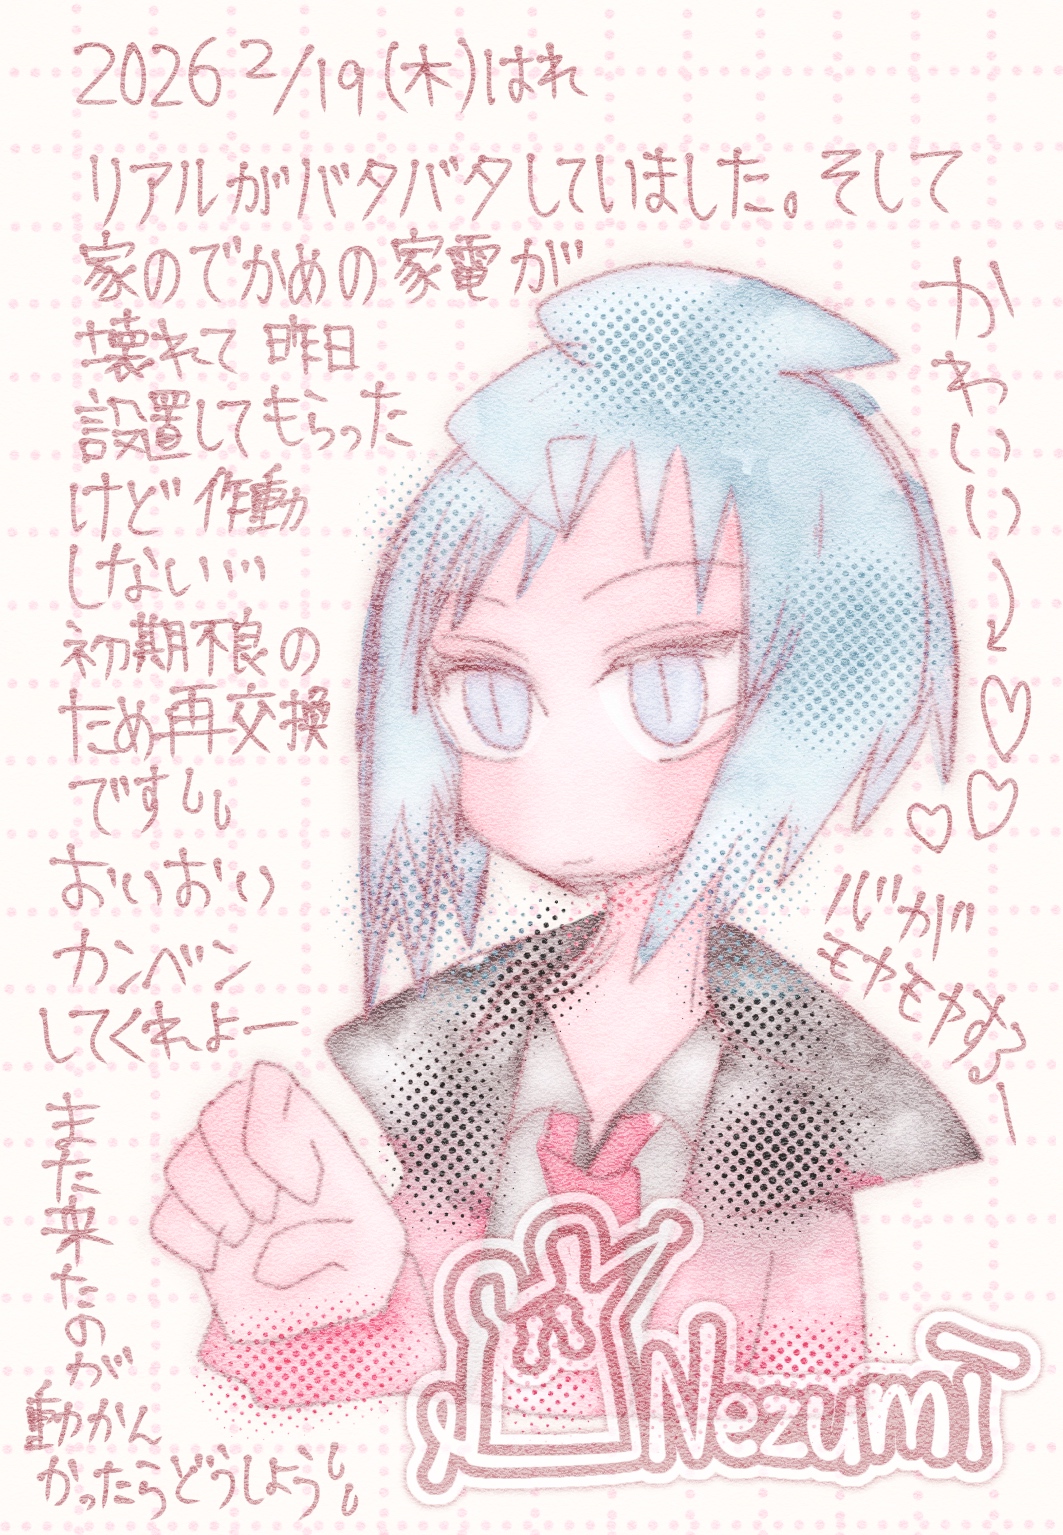 2026 2/19(木)はれ
リアルがバタバタしていました。そして
家のでかめの家電が
壊れて 昨日
設置してもらった
けど 作動
しない…
初期不良の
ため再交換
です
おいおい
カンベン
してくれよー
また来たのが
動かん
かったらどうしよう
かわいい
心が
モヤモヤする〜
Nezumi